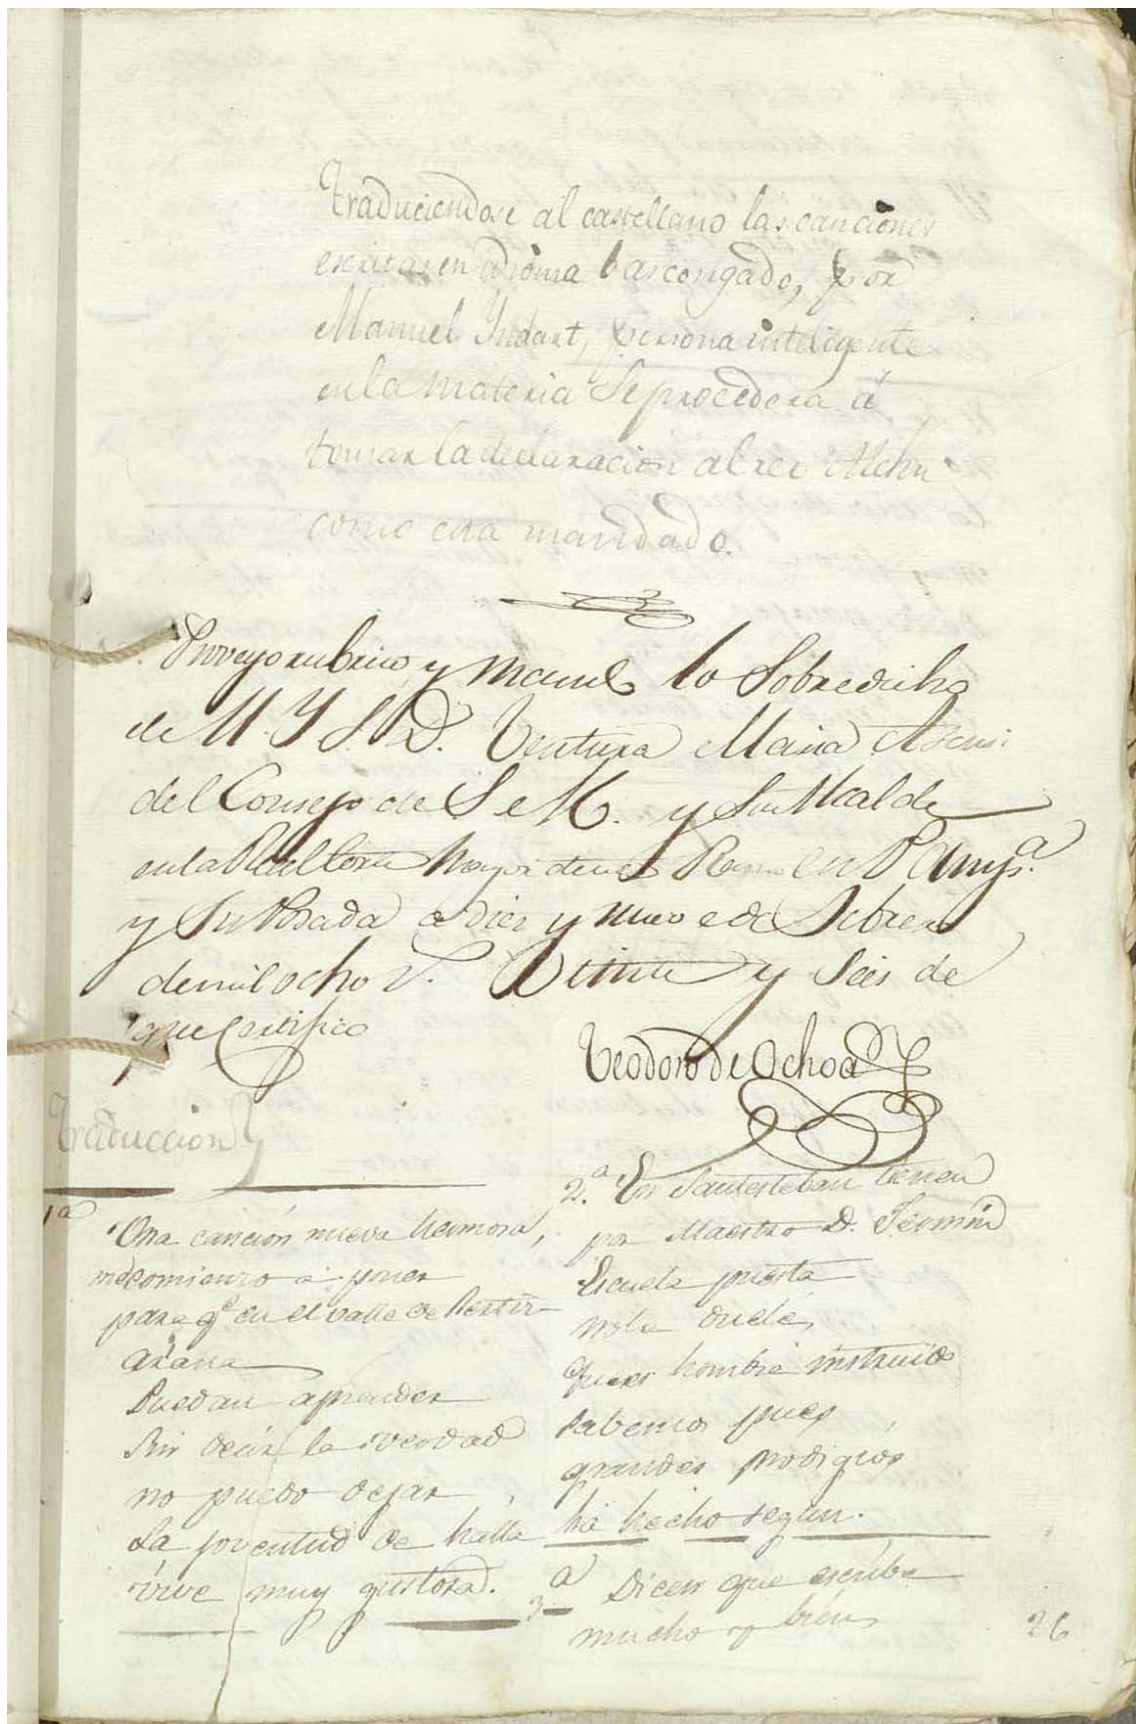 Traduciendose al castellano las canciones
escritas en idioma bascongado, por
Manuel Yndart, persona inteligente
en la materia Se procedera á
tomar la declaracion al reo
como esta mandado.
Proveyo rubrico y mando lo Sobredicho
de M. Y S. D. Ventura Maria
del Consejo de S. M. y Su Alcalde
en la Real Corte Mayor de este Reino en Pamp.a
y Su Posada a diez y nueve de Febrero
de mil ocho v. Veinte y Seis de
que Certifico
Teodoro de Ochoa
Traduccion
1a
Una cancion nueva hermosa,
me comienzo a poner
para q.e en el valle de
arana
Puedan aprender
Sin decir la verdad
no puedo dejar
La joventud de halla
vive muy gustosa.
2.a En Santesteban tienen
por Maestro D. Fermin
Escuela puesta
hombre instruido
Sabemos pues
grandes prodigios
há hecho segun.
3.a Dicen que escribe
mucho y bien
26